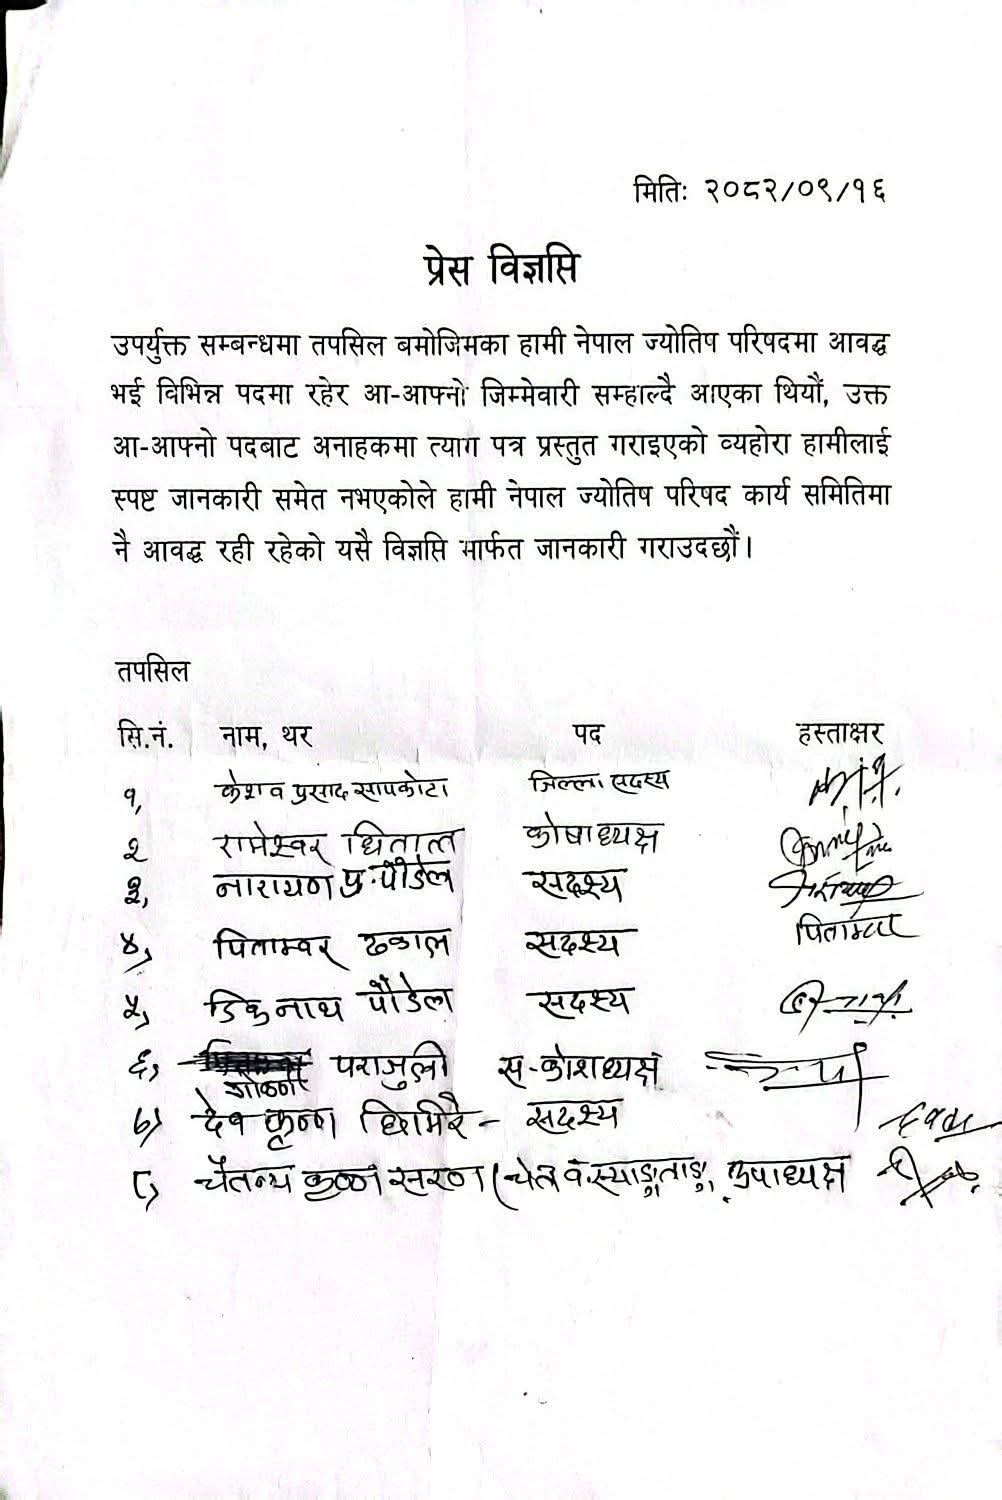 मितिः २०८२/०९/१६
प्रेस विज्ञप्ति
उपर्युक्त सम्बन्धमा तपसिल बमोजिमका हामी नेपाल ज्योतिष परिषदमा आवद्ध
भई विभिन्न पदमा रहेर आ-आफ्नो जिम्मेवारी सम्हाल्दै आएका थियौं, उक्त
आ-आफ्नो पदबाट अनाहकमा त्याग पत्र प्रस्तुत गराइएको व्यहोरा हामीलाई
स्पष्ट जानकारी समेत नभएकोले हामी नेपाल ज्योतिष परिषद कार्य समितिमा
नै आवद्ध रही रहेको यसै विज्ञप्ति मार्फत जानकारी गराउदछौं।
तपसिल
सि.नं. नाम, थर पद हस्ताक्षर
१, केशव प्रसाद सापकोटा जिल्ला सदस्य
२ रामेश्वर धिताल कोषाध्यक्ष
३, नारायण प्र. पौडेल सदश्य
४, पिताम्वर ढकाल सदश्य पिताम्वर
५, डिकुनाथ पौडेल सदश्य
६, पराजुली स-कोशध्यक्ष
७, देव कृष्ण घिमिरे - सदश्य
८, चैतन्य कृष्ण सरण